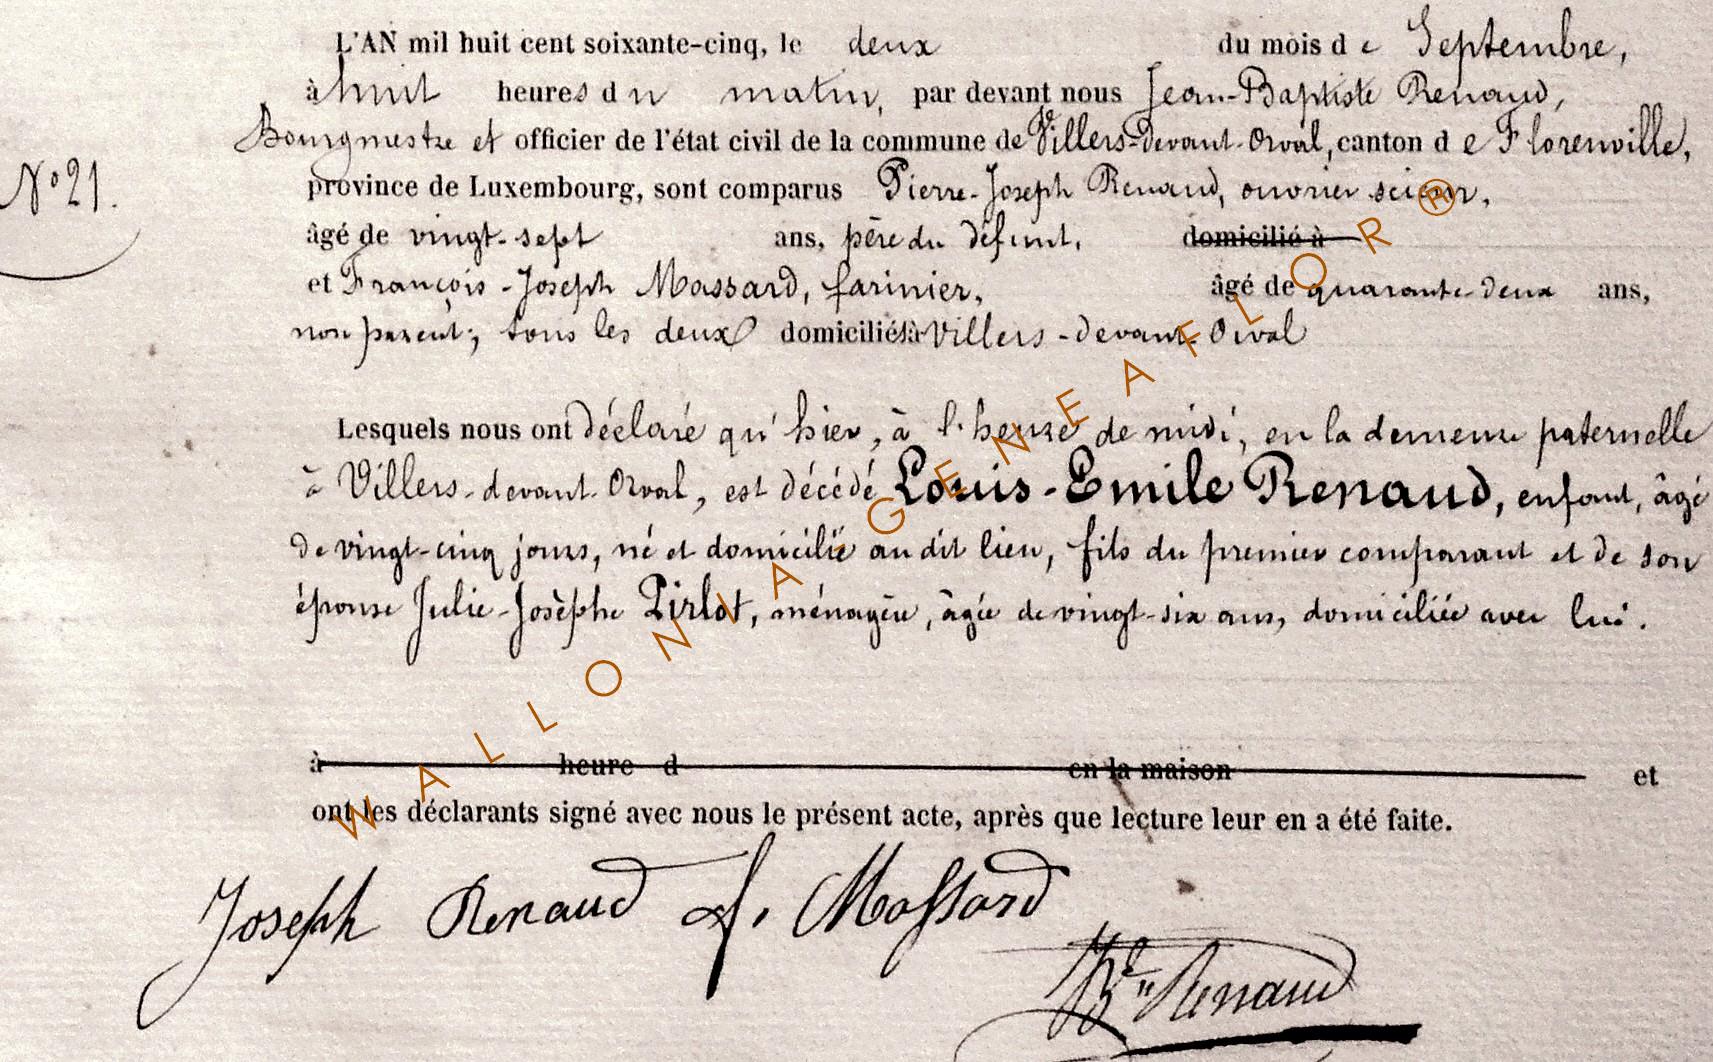 L'AN mil huit cent soixante-cinq, le deux du mois de Septembre,
à huit heures du matin, par devant nous Jean-Baptiste Renaud,
Bourgmestre et officier de l'état civil de la commune de Villers-devant-Orval, canton de Florenville,
N° 21.
province de Luxembourg, sont comparus Pierre-Joseph Renaud, ouvrier scieur,
âgé de vingt-sept ans, père du défunt, domicilié à
et François-Joseph Massard, farinier, âgé de quarante-deux ans,
non parent; tous les deux domiciliés à Villers-devant-Orval
Lesquels nous ont déclaré qu'hier, à l'heure de midi, en la demeure paternelle
à Villers-devant-Orval, est décédé Louis-Emile Renaud, enfant, âgé
de vingt-cinq jours, né et domicilié au dit lieu, fils du premier comparant et de son
épouse Julie-Josèphe Pirlot, ménagère, âgée de vingt-six ans, domiciliée avec lui.
à heure d en la maison et
ont les déclarants signé avec nous le présent acte, après que lecture leur en a été faite.
Joseph Renaud f. Massard
Bte Renaud
WALLONIA-GENEAFLOR®